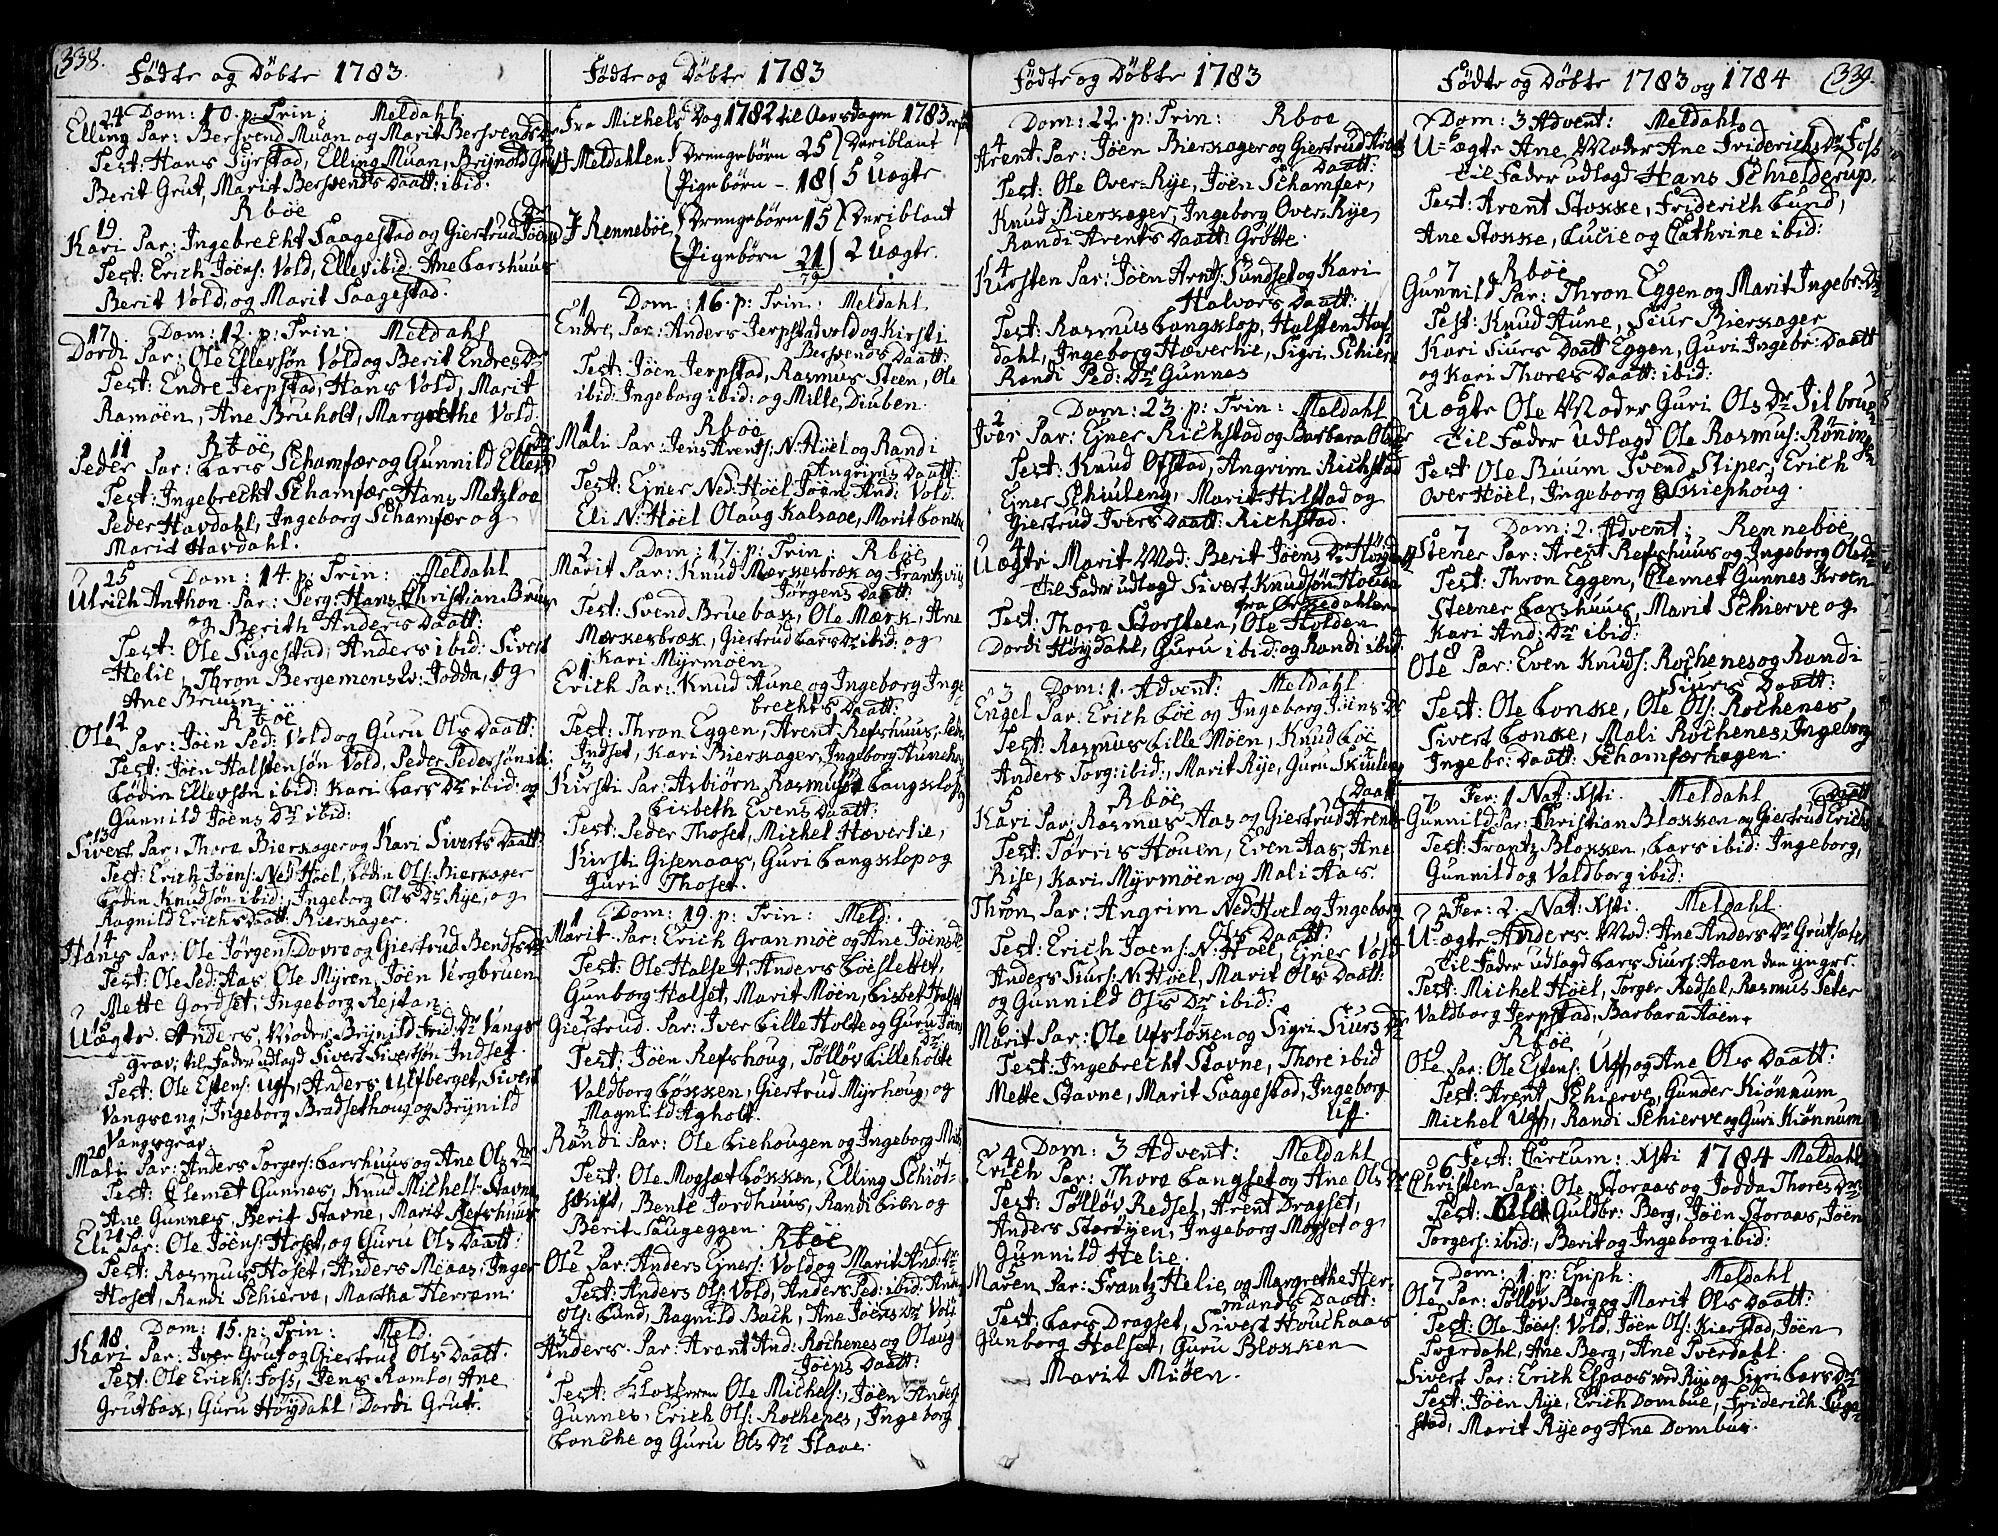 338.
Fødte og Døbte 1783.
24 Dom: 10. p: Trin: Meldahl
Elling Par: Bersvend Muan og Marit Bersvends
Test: Hans Syrstad, Elling Muan, Brÿnold Grut
Berit Grut, Marit Bersvends Daatt: ibid:
Rböe
19
Kari Par: Ingebrecht Saagestad og Giertrud Jöens
Test: Erich Jöens: Vold, Ellev ibid: Ane Larshuus
Berit Vold, og Marit Saagestad.
17. Dom: 12. p: Trin: Meldahl
Dordi Par: Ole Ellevsøn Vold og Berit Endres Dr
Test: Endre Jerpstad, Hans Vold, Marit
Ramöen, Ane Bruholt, Margrethe Vold.
11 Rböe
Peder Par: Lars Schamfær og Gunnild Ellevs
Test: Ingebrecht Schamfær, Hans Metzloe
Peder Havdahl, Ingeborg Schamfær og
Marit Havdahl.
25 Dom: 14. p: Trin: Meldahl
Ulrich Anthon. Par: Serg: Hans Christian Bruun
og Berith Anders Daatt:
Test: Ole Sugestad, Anders ibid: Sivert
Helie, Thron Bergemenslv: Jodda, og
Ane Bruun.
12 Rböe
Ole Par: Jöen Ped: Vold og Guru Ols Daatt:
Test: Jöen Halstensøn Vold, Peder Pedersøn ibi:
Lødin Ellevsøn ibid: Kari Lars Dr ibid: og
Gunnild Jöens Dr ibid:
13
Sivert Par: Thore Bierkager og Kari Siverts Daatt:
Test: Erich Jöens: Ned Höel, Lødin Ols: Bierkager
Lødin Knudsøn ibid:, Ingeborg Ols Dr Rÿe, og
Ragnild Erichs Daatt: Bierkager.
4
Hans Par: Ole Jørgens: Dovre og Giertrud Bendts Dr
Test: Ole Sed: Aas, Ole Mÿren, Jöen Vergbruen
Mette Gordset, Ingeborg Reistan.
Uægte Anders, Moder Brÿnild Frid: Dr Vangs
grav, til Fader udlagd Sivert Sivertsøn Indset.
Test: Ole Estens: Uff, Anders Ulfberget, Sivert
Vangseng, Ingeborg Bradsethoug og Brÿnild
Vangsgrav.
20
Mali Par: Anders Torgers: Larshuus og Ane Ols Dr
Test: Clemet Gunnes, Knud Michels: Stavne
Ane Gunnes, Berit Stavne, Marit Refshuus
21
Eli Par: Ole Jöens: Hoset, og Guru Ols Daatt:
Test: Rasmus Hoset, Anders Meaas, Inger
Hoset, Randi Schierve, Martha Herrem.
18 Dom: 15. p: Trin: Meld.
Kari Par: Iver Grut og Giertrud Ols Daatt:
Test: Ole Erichs: Foss, Jens Ramlo, Ane
Grutbak, Guru Höÿdahl, Dordi Grut.
Fødte og Døbte 1783
Fra Michels Dag 1782 til Aarsdagen 1783
J Meldahlen Drengebörn 25 Deriblant
Pigebörn - 18 5 Uægte
J Renneböe Drengebörn 15 Deriblant
Pigebörn 21 2 Uægte.
79
1 Dom: 16. p: Trin: Meldahl.
Endre, Par: Anders Jerpstadvold og Kirsti
Bersvends Daatt:
Test: Jöen Jerpstad, Rasmus Steen, Ole
ibid: Ingeborg ibid: og Mille Diuben.
1 Rböe
Mali Par: Jens Arents: N: Höel og Randi
Angrims Daatt:
Test: Ejner Ned: Höel, Jöen And: Vold.
Eli N: Höel Olaug Kalsaae, Marit Lonche
2 Dom: 17. p: Trin: Rböe
Marit Par: Knud Mærkesbræk og Frantzviig
Jørgens Daatt:
Test: Svend Bruebak, Ole Mærk, Ane
Mærkesbræk, Giertrud Lars Dr ibid: og
Kari Mÿrmöen
1
Erich Par: Knud Aune og Ingeborg Inge
brechts Daatt:
Test: Thron Eggen, Arent Refshuus, Peder
Indset, Kari Bierkager, Ingeborg Aunehoug
3
Kirsti Par: Asbiörn Rasmusøn Langklop
Lisbeth Evens Daatt:
Test: Peder Thoset, Michel Hæverlie,
Kirsti Gisenaas, Guri Langklop og
Guri Thoset.
1 Dom: 19. p: Trin: Meld:
Marit Par: Erich Granmöe og Ane Jöens Dr
Test: Ole Halset, Anders Löesletter,
Gunborg Halset, Marit Möen, Lisbet Halset
2
Giertrud. Par: Iver Lille Holte og Guru Jöens
Dr
Test: Jöen Refshoug, Tölløv Lilleholte
Valdborg Løkken, Giertrud Mÿrhoug, og
Magnild Agholt.
5
Randi Par: Ole Liehougen og Ingeborg
Test: Ole Mogsæt Løkken, Elling Schiøt-
skift, Bente Jordhuus, Randi Libn og
Berit Laugeggen.
2 Rböe
Ole Par: Anders Ejners: Vold og Marit And: Dr
Test: Anders Ols: Vold, Anders Ped: ibid: Anders
Ols: Lund, Ragnild Bach, Ane Jöens Dr Vold
3
Anders Par: Arent And: Rochenes og Olaug
Jöens Daatt:
Test: Klokkeren Ole Michels:, Jöen Anders
Gunnes, Erich Ols: Rochenes, Ingeborg
Lonche og Guru Ols Dr Flaae.
Fødte og Døbte 1783
Dom: 22. p: Trin: Rböe
4
Arent Par: Jöen Bierkager og Giertrud Arents
Daatt:
Test: Ole Over-Rÿe, Jöen Schamfer,
Knud Bierkager, Ingeborg Over-Rÿe,
Randi Arents Daatt: Grötte.
4
Kirsten Par: Jöen Arnts: Sundset og Kari
Halvors Daatt:
Test: Rasmus Langklop, Halsten Hof
dahl, Ingeborg Hæverlie, Sigri Schier
Randi Ped: Dr Gunnes
2 Dom: 23. p: Trin: Meldahl
Iver Par: Ejner Richstad og Barbara Olds
Test: Knud Ofstad, Angrim Richstad
Ejner Schiuleng, Marit Hilstad og
Giertrud Ivers Daatt: Richstad.
4
Uægte Marit Mod: Berit Jöens Dr Höÿdahl
til Fader udlagd Sivert Knudsøn Hoven
fra Orkedahlen
Test: Thore Storsteen, Ole Holden
Dordi Höÿdahl, Guru ibid: og Randi ibid:
3 Dom: 1. Advent: Meldahl
Engel Par: Erich Löe og Ingeborg Jöens Dr
Test: Rasmus Lille Möen, Knud Löe
Anders Torg: ibid:, Marit Rÿe, Guru Skiuleng
5 Rböe Daatt
Kari Par: Rasmus Aas og Giertrud Arents
Test: Törris Houen, Even Aas, Ane
Rise, Kari Mÿrmöen og Mali Aas.
5
Thron Par: Angrim Ned Höel og Ingeborg
Ols Daatt:
Test: Erich Jöens: N: Höel, Ejner Vold
Anders Siurs: N: Höel, Marit Ols Daatt:
og Gunnild Ols Dr ibid:
Marit Par: Ole Ufsløkken og Sigri Siurs Dr
Test: Ingebrecht Stavne, Thore ibid
Mette Stavne, Marit Saagestad, Ingeborg
Uff.
4 Dom: 3 Advent: Meldahl
Erich Par: Thore Langset og Ane Ols Dr
Test: Tølløv Redset, Arent Dragset,
Anders Storøÿen, Ingeborg Mogset og
Gunnild Helie.
Maren Par: Frantz Helie, og Margrethe Her-
mands Daatt:
Test: Lars Dragset, Sivert Houchaas
Gunborg Halset, Guru Blokken
Marit Miöen.
Fødte og Døbte 1783 og 1784 339.
Dom: 3 Advent: Meldahl
U-ægte Ane Moder Ane Friderichs Dr Foss
til Fader udlagd Hans Schielderup.
Test: Arent Stokke, Friderich Lund,
Ane Stokke, Lucie og Cathrine ibid:
7 Rböe
Gunnild Par: Thron Eggen og Marit Ingebr: Dr
Test: Knud Aune, Siur Bierkager
Kari Siurs Daatt Eggen, Guri Ingebr: Daatt
og Kari Thores Daatt: ibid:
Uægte Ole Moder Guri Ols Dr Jilbrup
til Fader udlagd Ole Rasmus: Rønningen
Test Ole Buum Svend Stiper, Erich
Over Höel, Ingeborg Skiephoug.
7 Dom: 2. Advent: Renneböe
Stener Par: Arent Refshuus og Ingeborg Ols Dr
Test: Thron Eggen, Clemet Gunnes Kroen
Steener Larshuus, Marit Schierve og
Kari And: Dr ibid:
8
Ole Par: Even Knuds: Rochenes og Randi
Siurs Daatt:
Test: Ole Lonke, Ole Ols: Rochenes
Sivert Lonke, Mali Rochenes, Ingeborg
Ingebr: Daatt: Schamferhagen.
7 Fer: 1 Nat: Xsti. Meldahl Daatt
Gunnild Par: Christian Blokken og Giertrud Erichs
Test: Frantz Blokken, Lars ibid: Ingeborg,
Gunnild og Valdborg ibid:
Fer: 2. Nat: Xsti. Meldahl.
U-ægte Anders. Mod: Ane Anders Dr Grutsæter
til Fader udlagd Lars Siurs: Aaen den yngre.
Test: Michel Höel, Torger Redsel, Rasmus Peter
Valdborg Jerpstad, Barbara Aaen.
9 Rböe
Ole Par: Ole Estens: Uff og Ane Ols Daatt:
Test: Arent Schierve, Gunder Kiönnum
Michel Uff, Randi Schierve og Guri Kiönnum
6 Fest: Circum: Xsti 1784 Meldahl
Christen Par: Ole Storaas og Jodda Thores Dr
Test: Ole Guldbr: Berg, Jöen Storaas, Jöen
Torgers: ibid:, Berit og Ingeborg ibid:
Dom: 1. p: Epiph: Meldahl
7
Ole Par: Tølløv Berg og Marit Ols Daatt:
Test: Ole Jöens: Vold, Jöen Ols: Kierstad, Jöen
Tverdahl, Ane Berg, Ane Tverdahl.
Sivert Par: Erich Espaas ved Rÿe og Sigri Lars Dr
Test: Jöen Rÿe, Erich Dombue, Friderich Suge
stad, Marit Rÿe og Ane Dombue.